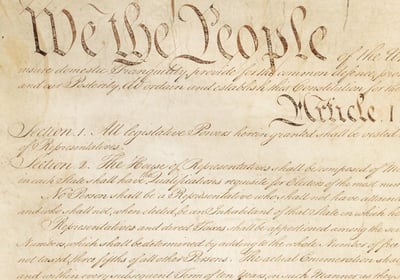 We the People
of the Un
insure domestic Tranquility, provide for the common defence, pro
and our Posterity, do ordain and establish this Constitution for the
Article. I
Section. 1. All legislative Powers herein granted shall be vested
of Representatives.
Section. 2. The House of Representatives shall be composed of Me
in each State shall have Qualifications requisite for Electors of the most num
No Person shall be a Representative who shall not have attained
and who shall not, when elected, be an Inhabitant of that State in which he
Representatives and direct Taxes shall be apportioned among the sev
Numbers, which shall be determined by adding to the whole Number of free
not taxed, three fifths of all other Persons. The actual Enumeration shall
and within every subsequent Term of ten Years, in such Manner as they